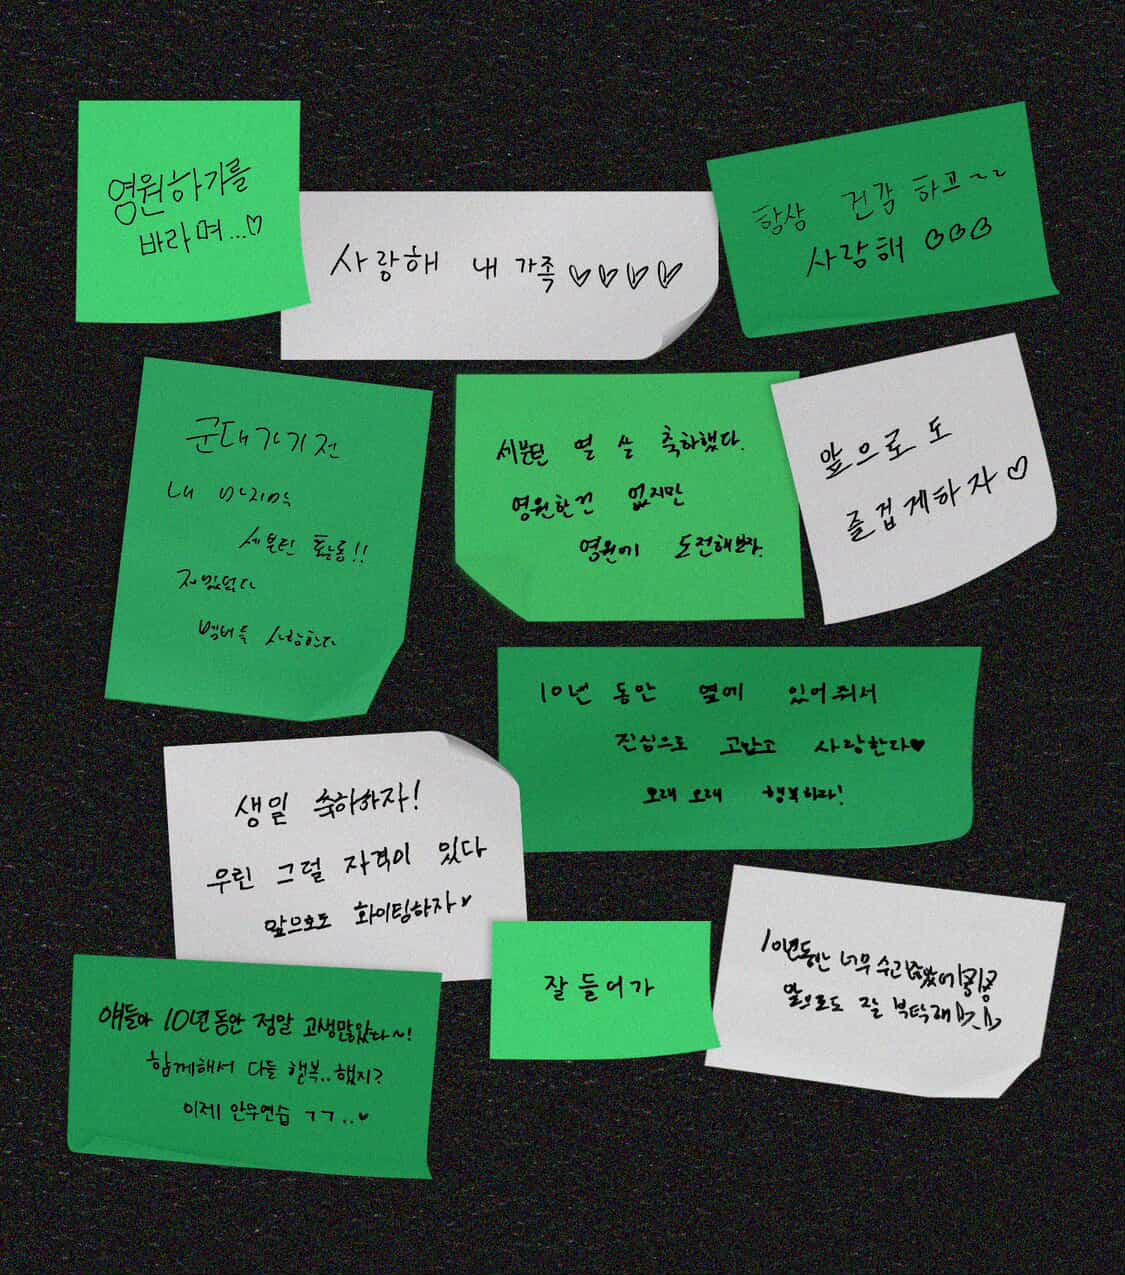 영원하기를
바라며...♡
사랑해 내 가족 ♡♡♡♡
항상 건강 하고~~
사랑해 ♡♡♡
군대가기전
내 마지막
세븐틴 활동!!
재밌었다
멤버들 사랑한다
세븐틴 열 살 축하했다.
영원한건 없지만
영원에 도전해보자.
앞으로도
즐겁게하자♡
10년 동안 옆에 있어줘서
진심으로 고맙고 사랑한다♥
오래오래 행복하자!
생일 축하하자!
우린 그럴 자격이 있다
앞으로도 화이팅하자♥
잘 들어가
10년동안 너무 수고많았어
앞으로도 잘 부탁해
얘들아 10년동안 정말 고생많았다~!
함께해서 다들 행복..했지?
이제 안무연습 ㄱㄱ..♥